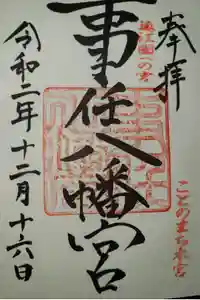 奉拝
遠江國一の宮
事任八幡宮
ことのまち八幡宮
令和二年十二月十六日